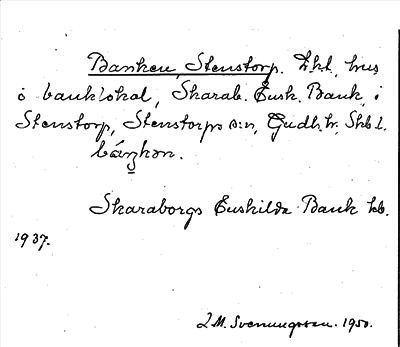 Banken, Stenstorp. Lkl., hus
o banklokal, Skarab. Ensk. Bank, i
Stenstorp, Stenstorps s:n, Gudh. hr. Skb l.
báŋkən.
Skaraborgs Enskilda Bank kb.
1937.
L.M. Svenungsson. 1950.